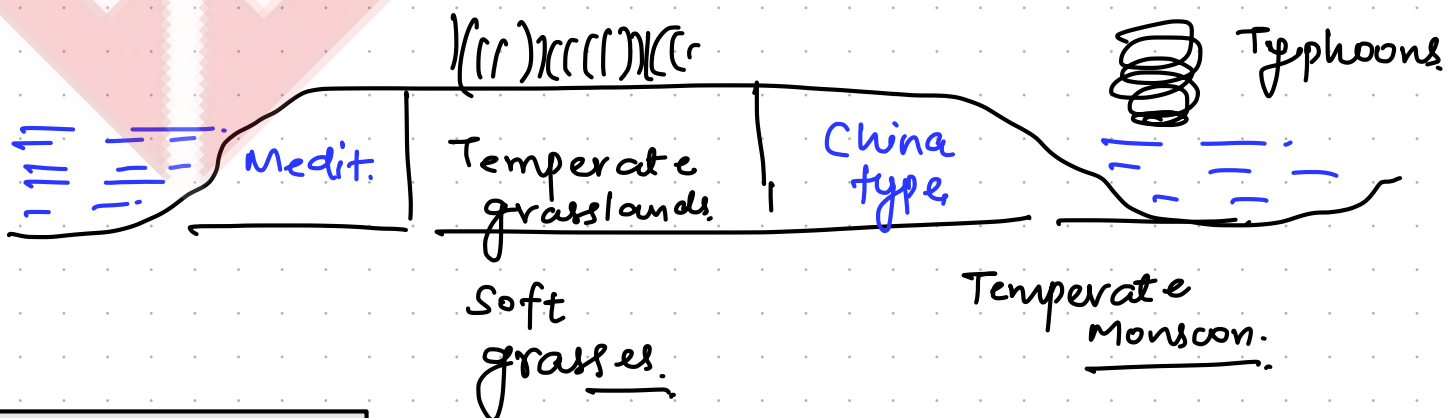 Typhoons.
Medit.
Temperate
grasslands.
China
type
Soft
grasses.
Temperate
Monsoon.